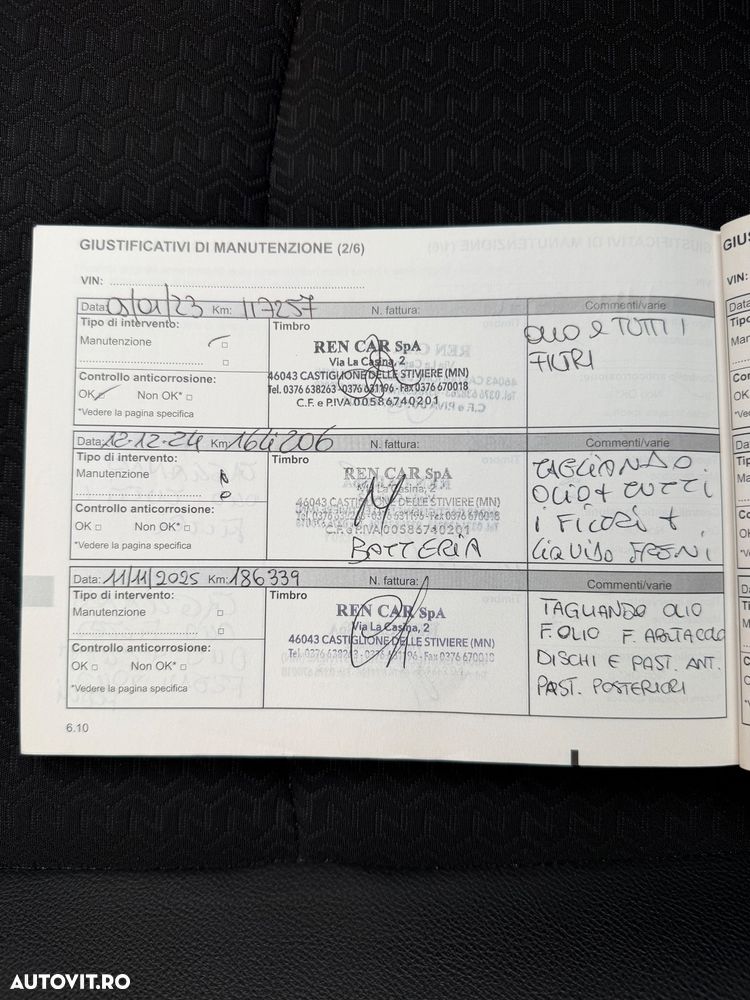 GIUSTIFICATIVI DI MANUTENZIONE (2/6)
VIN:
Data: 03/01/23 Km: 117257 N. fattura: Commenti/varie
Tipo di intervento:
Manutenzione
Controllo anticorrosione:
OK Non OK*
*Vedere la pagina specifica
Timbro
REN CAR SpA
Via La Casina, 2
46043 CASTIGLIONE DELLE STIVIERE (MN)
Tel. 0376 638263 - 0376 631196 - Fax 0376 670018
C.F. e P.IVA 00586740201
OLIO E TUTTI I
FILTRI
Data: 12-12-24 Km: 164206 N. fattura: Commenti/varie
Tipo di intervento:
Manutenzione
Controllo anticorrosione:
OK Non OK*
*Vedere la pagina specifica
Timbro
REN CAR SpA
Via La Casina, 2
46043 CASTIGLIONE DELLE STIVIERE (MN)
Tel. 0376 638263 - 0376 631196 - Fax 0376 670018
C.F. e P.IVA 00586740201
BATTERIA
TAGLIANDO.
OLIO + TUTTI
I FILTRI +
LIQUIDO FRENI
Data: 11/11/2025 Km: 186339 N. fattura: Commenti/varie
Tipo di intervento:
Manutenzione
Controllo anticorrosione:
OK Non OK*
*Vedere la pagina specifica
Timbro
REN CAR SpA
Via La Casina, 2
46043 CASTIGLIONE DELLE STIVIERE (MN)
Tel. 0376 638263 - 0376 631196 - Fax 0376 670018
TAGLIANDO OLIO
F. OLIO F. ABITACOLO
DISCHI E PAST. ANT.
PAST. POSTERIORI
6.10
AUTOVIT.RO